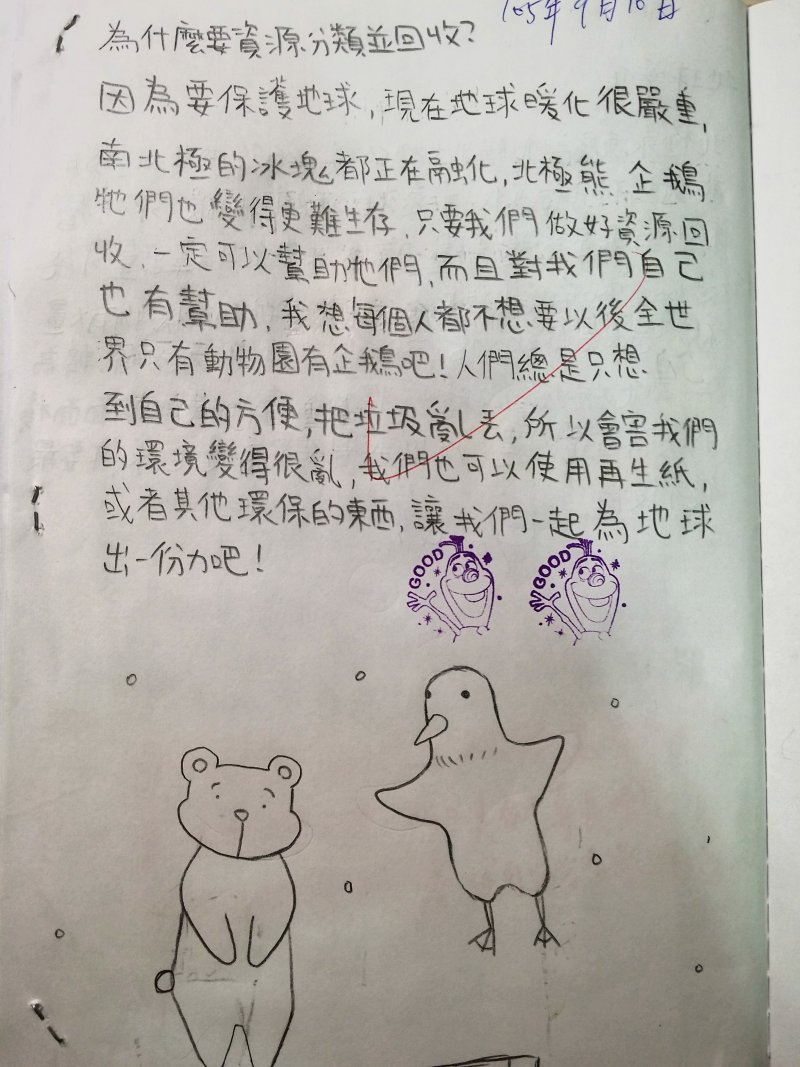 105年9月10日
為什麼要資源分類並回收?
因為要保護地球,現在地球暖化很嚴重,
南北極的冰塊都正在融化,北極熊 企鵝
牠們也變得更難生存,只要我們做好資源回
收,一定可以幫助牠們,而且對我們自己
也有幫助,我想每個人都不想要以後全世
界只有動物園有企鵝吧!人們總是只想
到自己的方便,把垃圾亂丟,所以會害我們
的環境變得很亂,我們也可以使用再生紙,
或者其他環保的東西,讓我們一起為地球
出一份力吧!
GOOD GOOD